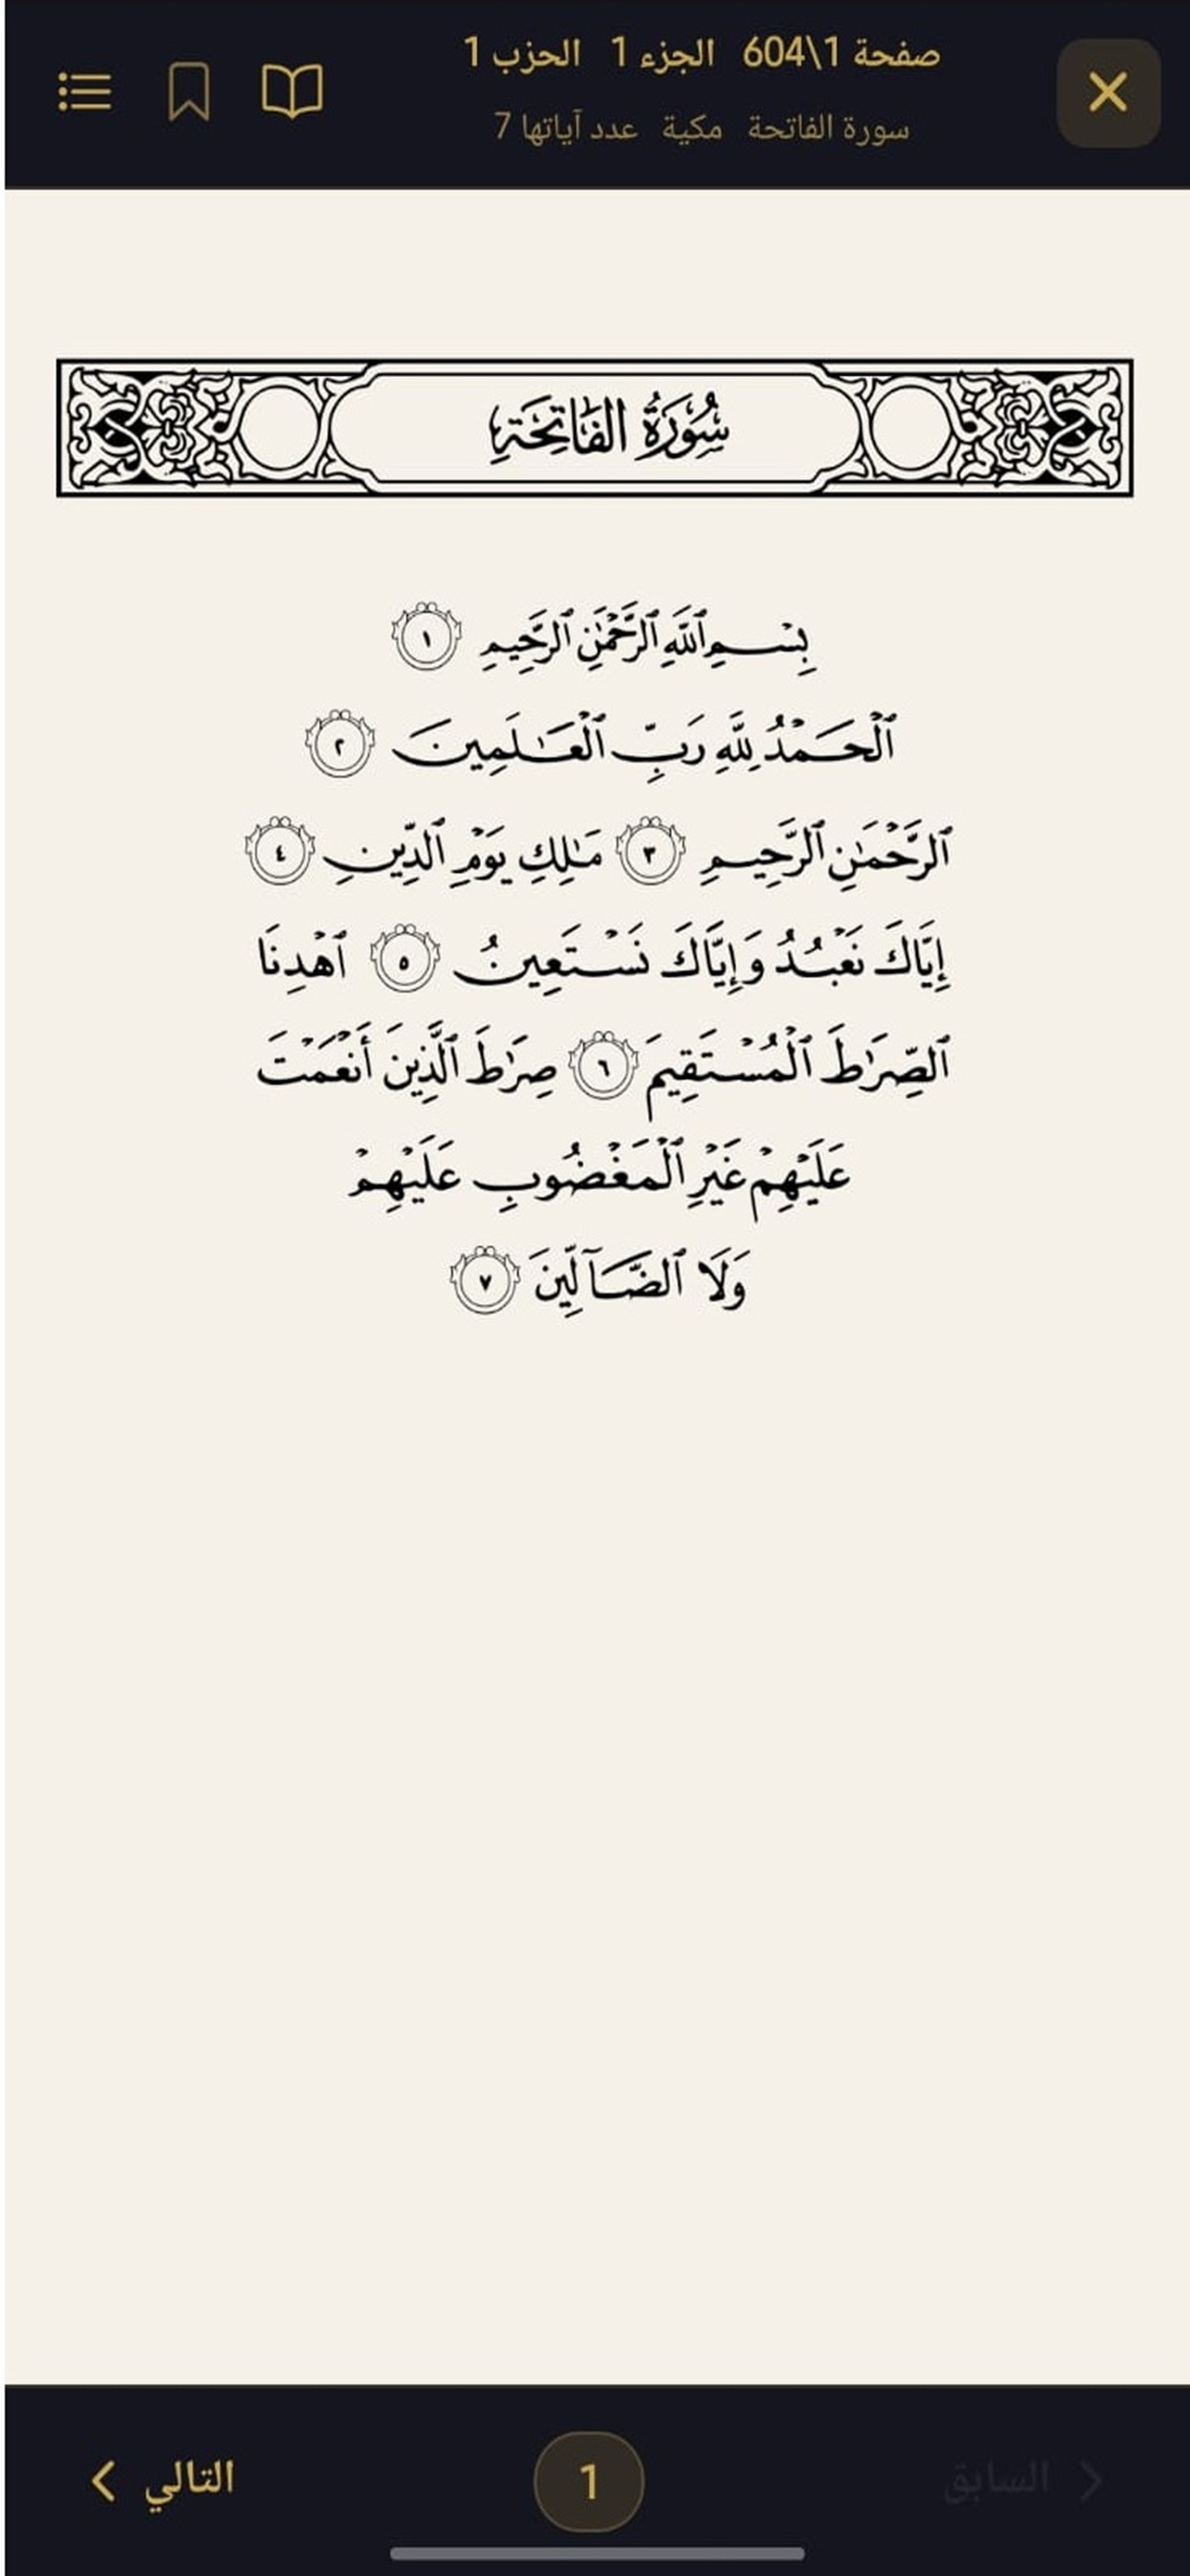 صفحة 1\604 الجزء 1 الحزب 1
سورة الفاتحة مكية عدد آياتها 7
سُورَةُ الفَاتِحَةِ
بِسۡمِ ٱللَّهِ ٱلرَّحۡمَٰنِ ٱلرَّحِيمِ ١
ٱلۡحَمۡدُ لِلَّهِ رَبِّ ٱلۡعَٰلَمِينَ ٢
ٱلرَّحۡمَٰنِ ٱلرَّحِيمِ ٣ مَٰلِكِ يَوۡمِ ٱلدِّينِ ٤
إِيَّاكَ نَعۡبُدُ وَإِيَّاكَ نَسۡتَعِينُ ٥ ٱهۡدِنَا
ٱلصِّرَٰطَ ٱلۡمُسۡتَقِيمَ ٦ صِرَٰطَ ٱلَّذِينَ أَنۡعَمۡتَ
عَلَيۡهِمۡ غَيۡرِ ٱلۡمَغۡضُوبِ عَلَيۡهِمۡ
وَلَا ٱلضَّآلِّينَ ٧
السابق 1 التالي